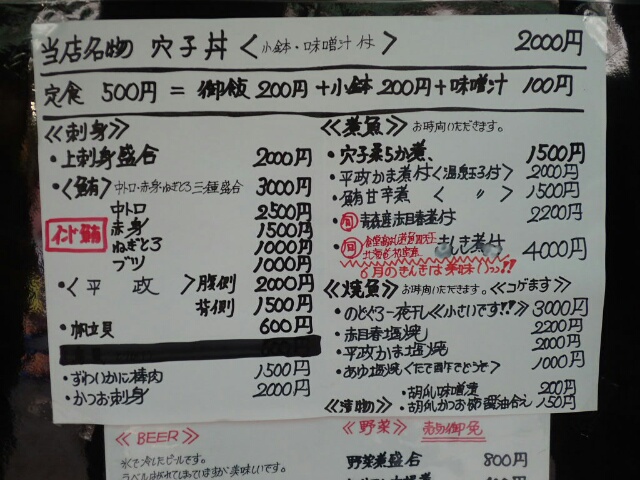 当店名物 穴子丼 <小鉢・味噌汁付> 2000円
定食 500円 = 御飯 200円 + 小鉢 200円 + 味噌汁 100円
≪刺身≫
・上刺身盛合 2000円
・<鮪> 中トロ・赤身・ねぎとろ 三種盛合 3000円
インド鮪
中トロ 2500円
赤身 1500円
ねぎとろ 1000円
ブツ 1000円
・<平政> 腹側 2000円
背側 1500円
・帆立貝 600円
・ずわいかに棒肉 1500円
・かつお刺身 2000円
≪煮魚≫ お時間いただきます。
・穴子柔らか煮、 1500円
・平政かま煮付<温度玉子付> 2000円
・鮪甘辛煮 < 〃 > 1500円
・旬 青森産赤目春煮付 2200円
・旬 北海道知床産 きんき煮付 4000円
6月のきんきは美味いっっ!!
≪焼魚≫ お時間いただきます。≪コゲます≫
・のどぐろ一夜干し<小さいです!!> 3000円
・赤目春塩焼 2200円
・平政かま塩焼 2000円
・あゆ塩焼 1000円
≪漬物≫
・胡瓜味噌漬 200円
・胡瓜かつお節醤油合え 150円
≪BEER≫
氷で冷したビールです。
ラベルはがれてしまっていますが美味しいです。
≪野菜≫ 売切御免
野菜煮盛合 800円